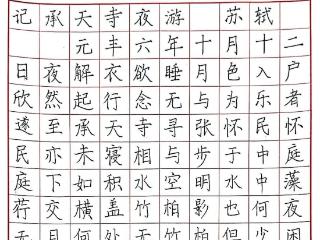 记承天寺夜游 苏轼
元丰六年十月十二
日夜解衣欲睡月色入户
欣然起行念无与为乐者
遂至承天寺寻张怀民怀
民亦未寝相与步于中庭
庭下如积水空明水中藻
荇交横盖竹柏影也何夜
无月何处无竹柏但少闲